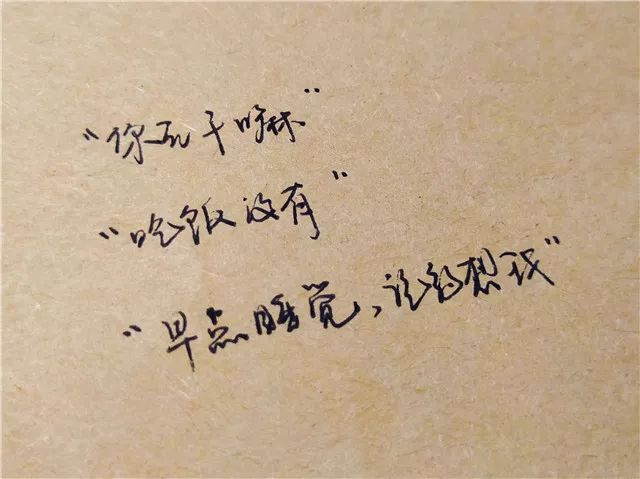 “你在干嘛”
“吃饭没有”
“早点睡觉，记的想我”